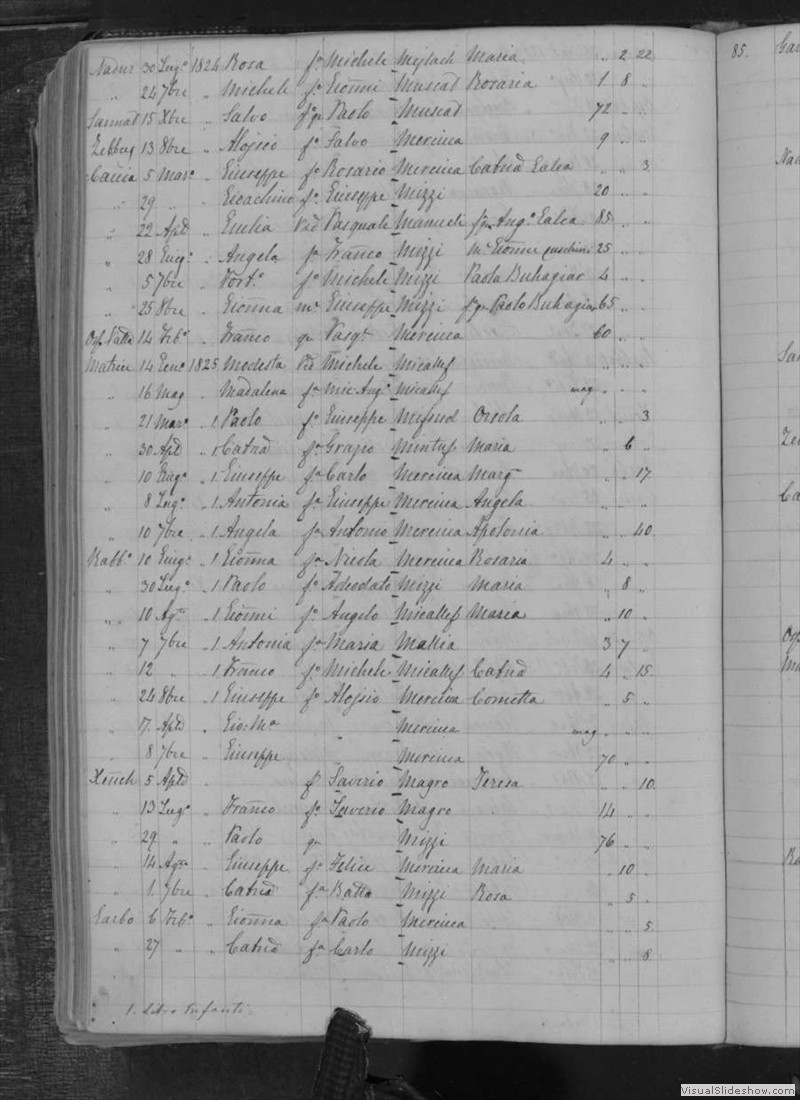 Nadur 30 Lug° 1824 Rosa fa Michele Mejlach Maria „ 2 22
„ 24 7bre „ Michele f° Gionni Muscat Rosaria 1 8 „
Sannat 15 Xbre „ Salvo Paolo Muscat 72 „ „
Zebbug 13 8bre „ Alojsio f° Salvo Mercieca 9 „ „
Caccia 5 Mar° „ Giuseppe f° Rosario Mercieca Catnā Galea „ „ 3
„ 29 „ „ Gioachino f° Giuseppe Mizzi 20 „ „
„ 22 Aple „ Emilia Vid Pasquale Mamueli Ang° Galea 85 „ „
„ 28 Giug° „ Angela fa Franco Mizzi Gionni 25 „ „
„ 5 7bre „ Fort° f° Michele Mizzi Paola Buhagiar 4 „ „
„ 25 8bre „ Gionna Giuseppe Mizzi Paolo Buhagiar 65 „ „
14 Frb° „ Franco Mercieca 60 „ „
Matrice 14 Gen° 1825 Modesta Vid Michele Micallef „ „ „
„ 16 Mag „ Madalena fa Mic Ang° Micallef mag „ „ „
„ 21 Mar° „ 1 Paolo f° Giuseppe Mifsud Orsola „ „ 3
„ 30 Aple „ 1 Catnā fa Grazio Mintuf Maria „ 6 „
„ 10 Giug° „ 1 Giuseppe f° Carlo Mercieca Marga „ „ 17
„ 8 Lug° „ 1 Antonia fa Giuseppe Mercieca Angela „ „ „
„ 10 7bre „ 1 Angela fa Antonio Mercieca Apolonia „ „ 40
Rabb° 10 Giug° „ 1 Gionna fa Nicola Mercieca Rosaria 4 „ „
„ 30 Lug° „ 1 Paolo f° Adeodato Mizzi Maria „ 8 „
„ 10 Ag° „ 1 Gionni f° Angelo Micallef Maria „ 10 „
„ 7 7bre „ 1 Antonia fa Maria Mallia 3 7 „
„ 12 „ „ 1 Franco f° Michele Micallef Catnā 4 „ 15
„ 24 8bre „ 1 Giuseppe f° Alojsio Mercieca Cornetta „ 5 „
„ 17 Aple „ Gio: Ma „ Mercieca mag „ „ „
„ 8 7bre „ Giuseppe „ Mercieca 70 „ „
Xeuch 5 Aple f° Saverio Magro Teresa „ „ 10
„ 13 Lug° „ Franco f° Saverio Magro 14 „ „
„ 29 „ „ Paolo Mizzi 76 „ „
„ 14 Ag° „ Giuseppe f° Felice Mercieca Maria „ 10 „
„ 1 7bre „ Catnā fa Batta Mizzi Rosa „ 5 „
Garbo 6 Frb° „ Gionna fa Paolo Mercieca „ „ 5
„ 27 „ „ Catnā fa Carlo Mizzi „ „ 8
1. Libro Infanti.
85.
VisualSlideshow.com